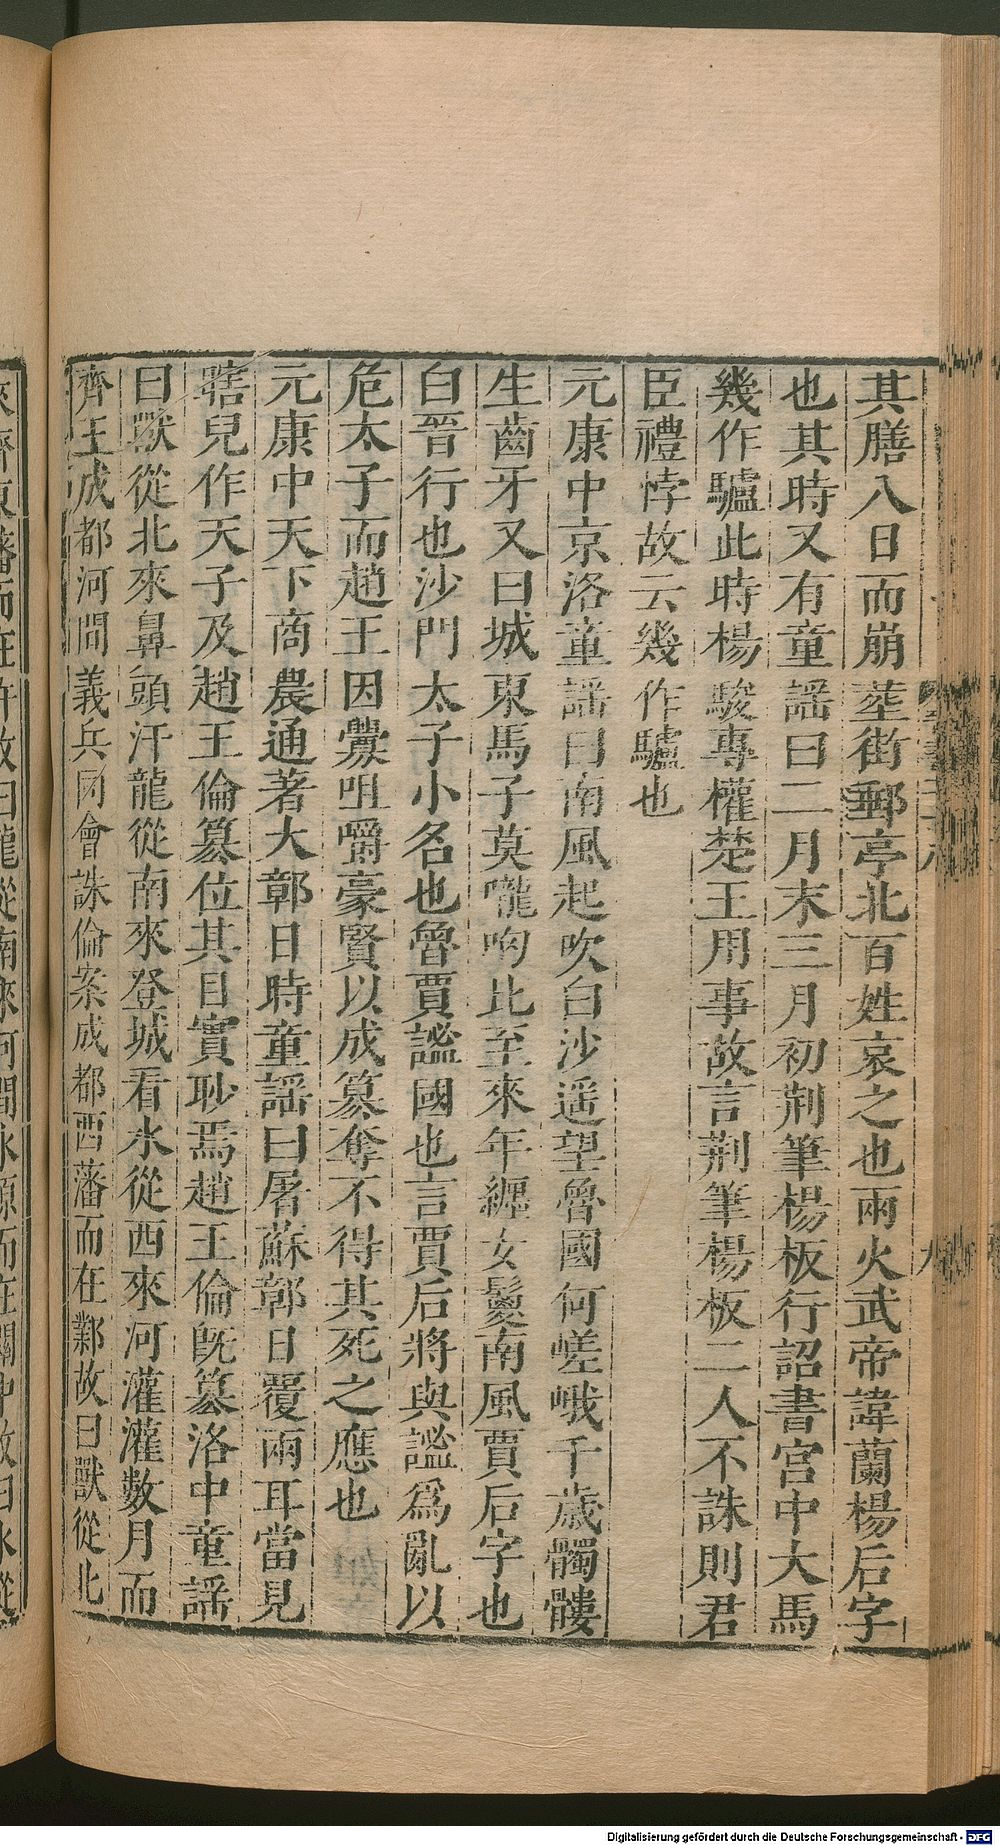 其膳八日而崩葬街郵亭北百姓哀之也兩火武帝諱蘭楊后字
也其時又有童謡曰二月末三月初荆筆楊板行詔書宫中大馬
幾作驢此時楊駿專權楚王用事故言荆筆楊板二人不誅則君
臣禮悖故云幾作驢也
元康中京洛童謡曰南風起吹白沙遥望魯國何嵯峨千歳髑髏
生齒牙又曰城東馬子莫嚨哅比至來年纒女鬉南風賈后字也
白晉行也沙門太子小名也魯賈謐國也言賈后將與謐爲亂以
危太子而趙王因釁咀嚼豪賢以成篡奪不得其死之應也
元康中天下商農通著大鄣日時童謡曰屠蘇鄣日覆兩耳當見
瞎兒作天子及趙王倫篡位其目實眇焉趙王倫旣篡洛中童謡
曰獸從北來鼻頭汗龍從南來登城看水從西來河灌灌數月而
齊王成都河間義兵同會誅倫案成都西藩而在鄴故曰獸從北
來齊東藩而在許故曰龍從南來河間水源而在關中故曰水從
Digitalisierung gefördert durch die Deutsche Forschungsgemeinschaft - DFG